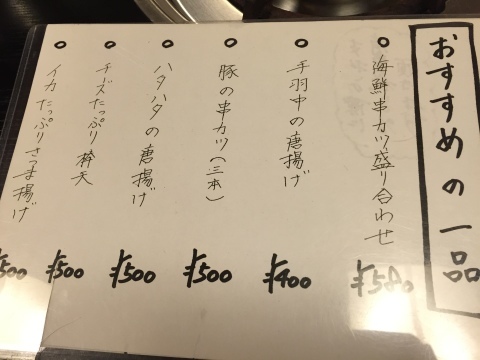 おすすめの一品
海鮮串カツ盛り合わせ
¥580
手羽中の唐揚げ
¥400
豚の串カツ(三本)
¥500
ハタハタの唐揚げ
¥500
チーズたっぷり棒天
¥500
イカたっぷりさつま揚げ
¥500